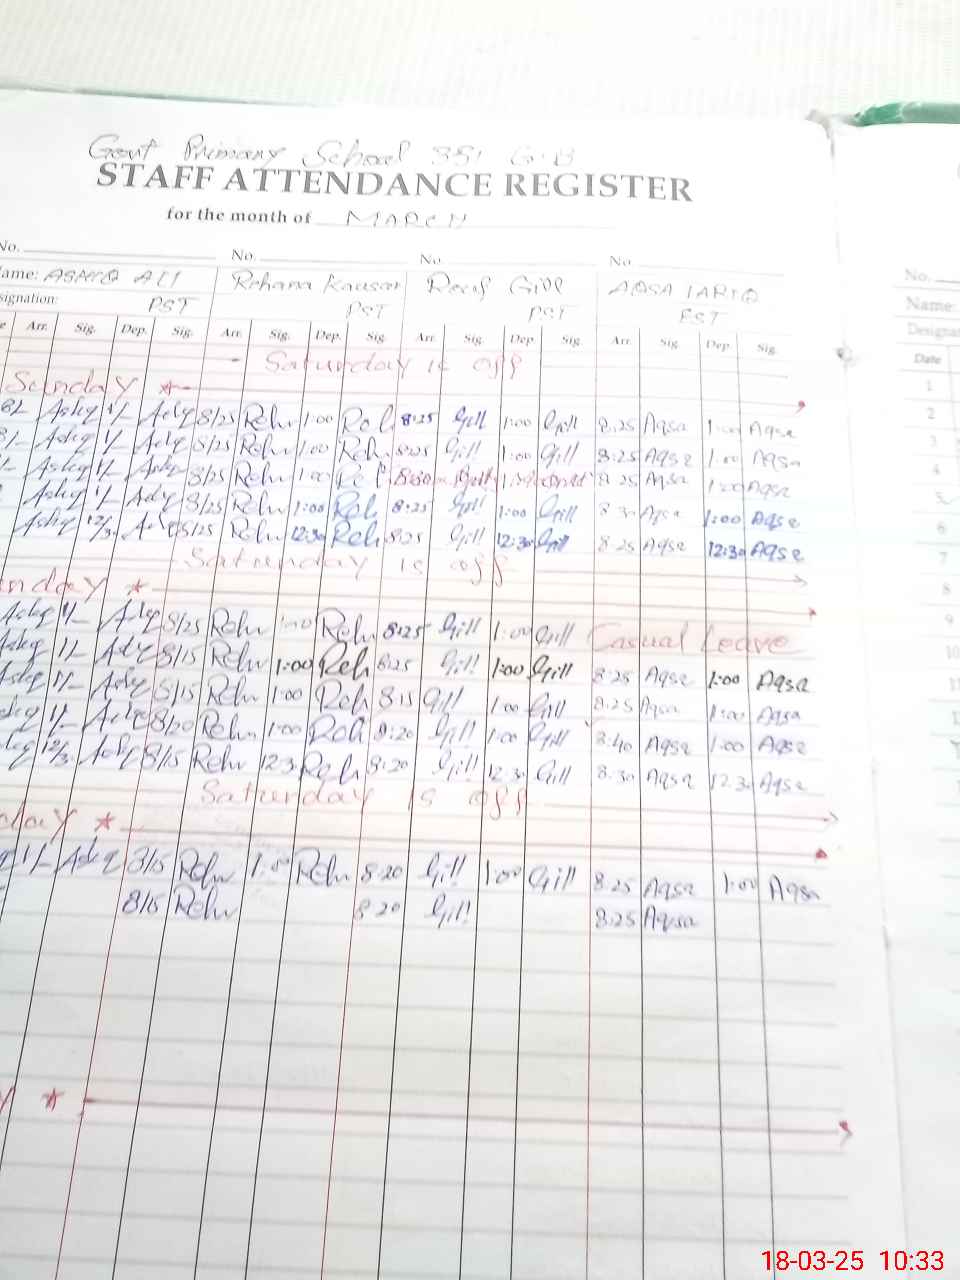 Govt Primary School 351 G.B
STAFF ATTENDANCE REGISTER
for the month of MARCH
No. No. No. No. No.
ame: ASHIQ ALI Rehana Kausar Gill AQSA TARIQ Name:
signation: PST PST PST EST Designat
e Arr. Sig. Dep. Sig. Arr. Sig. Dep. Sig. Arr. Sig. Dep. Sig. Arr. Sig. Dep. Sig. Date
Saturday is off 1
Sunday 2
8/- Ashq 1/- Ashq 8/25 Reh 1:00 Reh 8:25 Gill 1:00 Gill 8:25 Aqsa 1:00 Aqsa 3
8/- Ashq 1/- Ashq 8/25 Reh 1:00 Reh 8:25 Gill 1:00 Gill 8:25 Aqsa 1:00 Aqsa 4
/- Ashq 1/- Ashq 8/25 Reh 1:00 Reh 8:25 Aqsa 1:00 Aqsa 5
Ashq 1/- Ashq 8/25 Reh 1:00 Reh 8:25 Gill 1:00 Gill 8:30 Aqsa 1:00 Aqsa 6
Ashq 12/3 Ashq 8/25 Reh 12:30 Reh 8:25 Gill 12:30 Gill 8:25 Aqsa 12:30 Aqsa 7
Saturday is off 8
nday 9
Ashq 1/- Ashq 8/25 Reh 1:00 Reh 8:25 Gill 1:00 Gill Casual Leave 10
Ashq 1/- Ashq 8/15 Reh 1:00 Reh 8:25 Gill 1:00 Gill 8:25 Aqsa 1:00 Aqsa
Ashq 1/- Ashq 8/15 Reh 1:00 Reh 8:15 Gill 1:00 Gill 8:25 Aqsa 1:00 Aqsa
shq 1/- Ashq 8/20 Reh 1:00 Reh 8:20 Gill 1:00 Gill 8:40 Aqsa 1:00 Aqsa
shq 12/3 Ashq 8/15 Reh 12:3 Reh 8:20 Gill 12:30 Gill 8:30 Aqsa 12:30 Aqsa
Saturday is off
day
q 1/- Ashq 8/15 Reh 1:00 Reh 8:20 Gill 1:00 Gill 8:25 Aqsa 1:00 Aqsa
8/15 Reh 8:20 Gill 8:25 Aqsa
y
18-03-25 10:33